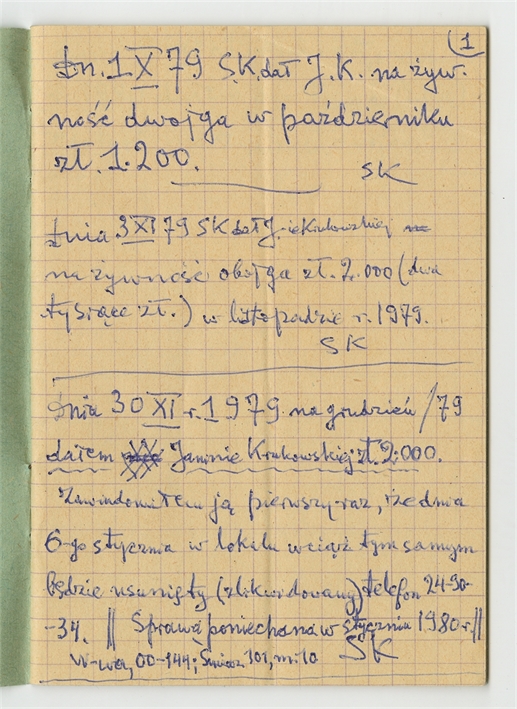 1
Dn. 1 X 79 S.K. dał J.K. na żyw-
ność dwojga w październiku
zł. 1.200.
SK
Dnia 3 XI 79 SK dał J-ie Krukowskiej
na żywność obojga zł. 2.000 (dwa
tysiące zł.) w listopadzie r. 1979.
SK
Dnia 30 XI r. 1979 na grudzień /79
dałem Janinie Krukowskiej zł. 2.000.
Zawiadomiłem ją pierwszy raz, że dnia
6-go stycznia w lokalu wciąż tym samym
będzie usunięty (zlikwidowany) telefon 24-30-
-34. || Sprawa poniechana w styczniu 1980 r. ||
W-wa, 00-144; 101, m. 10
SK